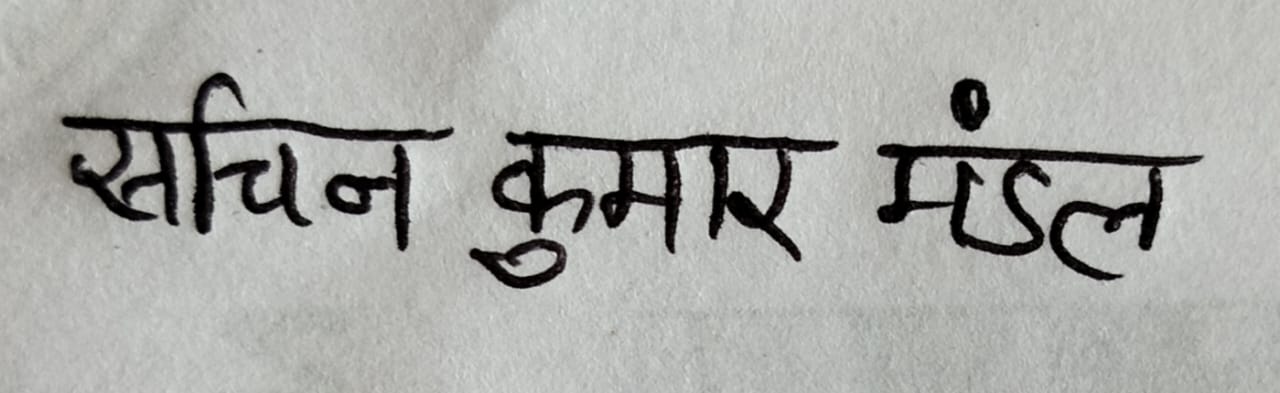 सचिन कुमार मंडल